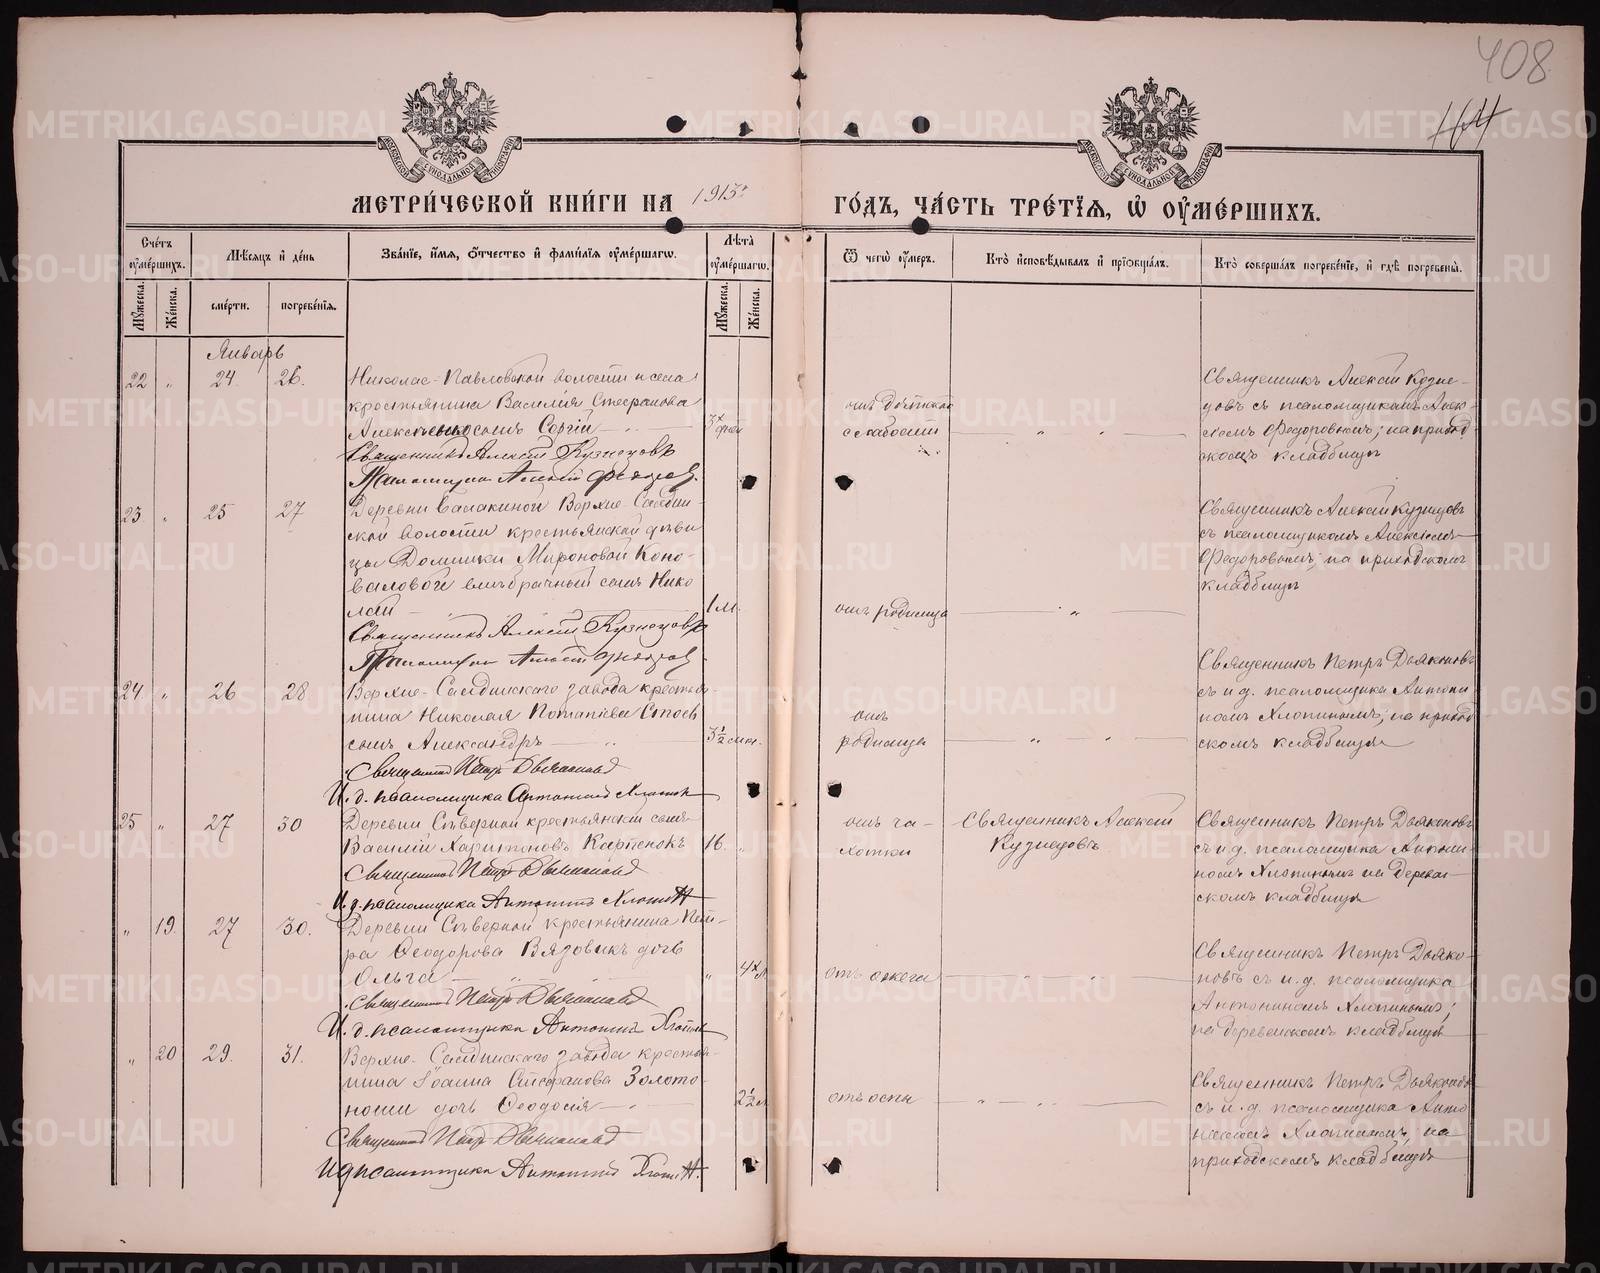 408
164
МЕТРИ́ЧЕСКОЙ КНИ́ГИ НА 1913 г. ГО́ДЪ, ЧА́СТЬ ТРЕ́ТІѦ, Ѡ҆ ОУ҆МЕ́РШИХЪ.
Сче́тъ оу҆ме́ршихъ.
Мѣ́сяцъ и҆ де́нь
Зва́ніе, и҆́мя, ѻ҆́тчество и҆ фами́лія оу҆ме́ршагѡ.
Лѣ́та оу҆ме́ршагѡ.
Ѿ чегѡ̀ оу҆́меръ.
Кто̀ и҆сповѣ́дывалъ и҆ прїѡбща́лъ.
Кто̀ соверша́лъ погребе́ніе, и҆ гдѣ̀ погребены̀.
Му́жеска. Же́нска. сме́рти. погребе́нія. Му́жеска. Же́нска.
Январь
22 " 24. 26.
Николае-Павловской волости и села
крестьянина Василія Стефанова
сынъ Сергій
Священникъ Алексѣй Кузнецовъ
Псаломщикъ Алексѣй Федоров
3х дней
отъ дѣтской
слабости
Священникъ Алексѣй Кузне-
цовъ съ псаломщикомъ Алек-
сѣемъ Федоровымъ; на приход-
скомъ кладбищѣ
23. " 25 27
Деревни Балакиной Верхне-Салдин-
ской волости крестьянской дѣви-
цы Домники Мироновой Коно-
валовой внѣбрачный сынъ Нико
лай
Священникъ Алексѣй Кузнецовъ
Псаломщикъ Алексѣй Федоров
1 м.
отъ родимца
Священникъ Алексѣй Кузнецовъ
съ псаломщикомъ Алексѣемъ
Федоровымъ; на приходскомъ
кладбищѣ
24. " 26 28
Верхне-Салдинскаго завода крестья
нина Николая Потапіева
сынъ Александръ
Священникъ Петръ Дьяконовъ
И. д. псаломщика Антонинъ Хлопин
3 1/2
отъ
родимца
Священникъ Петръ Дьяконовъ
съ и.д. псаломщика Антони
номъ Хлопинымъ; на приход
скомъ кладбищѣ
25 " 27 30
Деревни Сѣверной крестьянскій сынъ
Василій Харитоновъ Карпенокъ
Священникъ Петръ Дьяконовъ
И. д. псаломщика Антонинъ Хлопин
16. "
отъ ча-
хотки
Священникъ Алексѣй
Кузнецовъ
Священникъ Петръ Дьяконовъ
съ и.д. псаломщика Антони-
номъ Хлопинымъ на деревен-
скомъ кладбищѣ
" 19. 27 30.
Деревни Сѣверной крестьянина Пет-
ра Ѳеодорова Вязовикъ дочь
Ольга
Священникъ Петръ Дьяконовъ
И. д. псаломщика Антонинъ Хлопин
" 4х л
отъ ожега
Священникъ Петръ Дьяко-
новъ съ и.д. псаломщика
Антониномъ Хлопинымъ;
на деревенскомъ кладбищѣ
" 20 29. 31.
Верхне-Салдинскаго завода крестья-
нина Іоанна Стефанова Золото-
дочь Ѳеодосія
Священникъ Петръ Дьяконовъ
И д псаломщика Антонинъ Хлопин.
2 1/2 л
отъ оспы
Священникъ Петръ Дьяконовъ
съ и.д. псаломщика Анто
ниномъ Хлопинымъ, на
приходскомъ кладбищѣ
METRIKI.GASO-URAL.RU